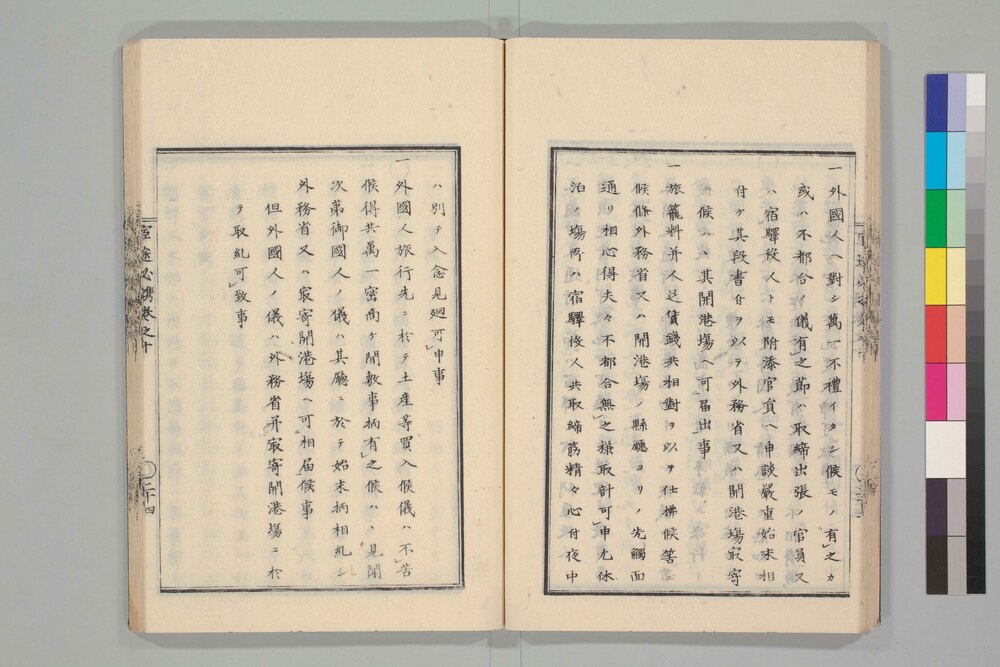 一外國人ヘ對シ萬一不禮イタシ候モノ有之カ
或ハ不都合ノ儀有之節ハ取締出張ノ官員又
ハ宿驛役人トモ附添官員ヘ申談嚴重始末相
付ケ其段書付ヲ以テ外務省又ハ開港場最寄
ニ候ハヽ其開港場ヘ可届出事
一旅籠料并人足賃錢共相對ヲ以テ仕拂候筈ニ
候條外務省又ハ開港場ノ縣廳ヨリノ先觸面
通リ相心得夫々不都合無之樣取計可申尤休
泊ノ場所ハ宿驛役人共取締筋精々心付夜中
ハ別テ入念見廻可申事
一外國人旅行先ニ於テ土産等買入候儀ハ不苦
候得共萬一密商ケ間敷事柄有之候ハヽ見聞
次第御國人ノ儀ハ其廳ニ於テ始末柄相糺シ
外務省又ハ最寄開港場ヘ可相届候事
但外國人ノ儀ハ外務省并最寄開港場ニ於
テ取糺可致事
官途必携卷之十
二十四